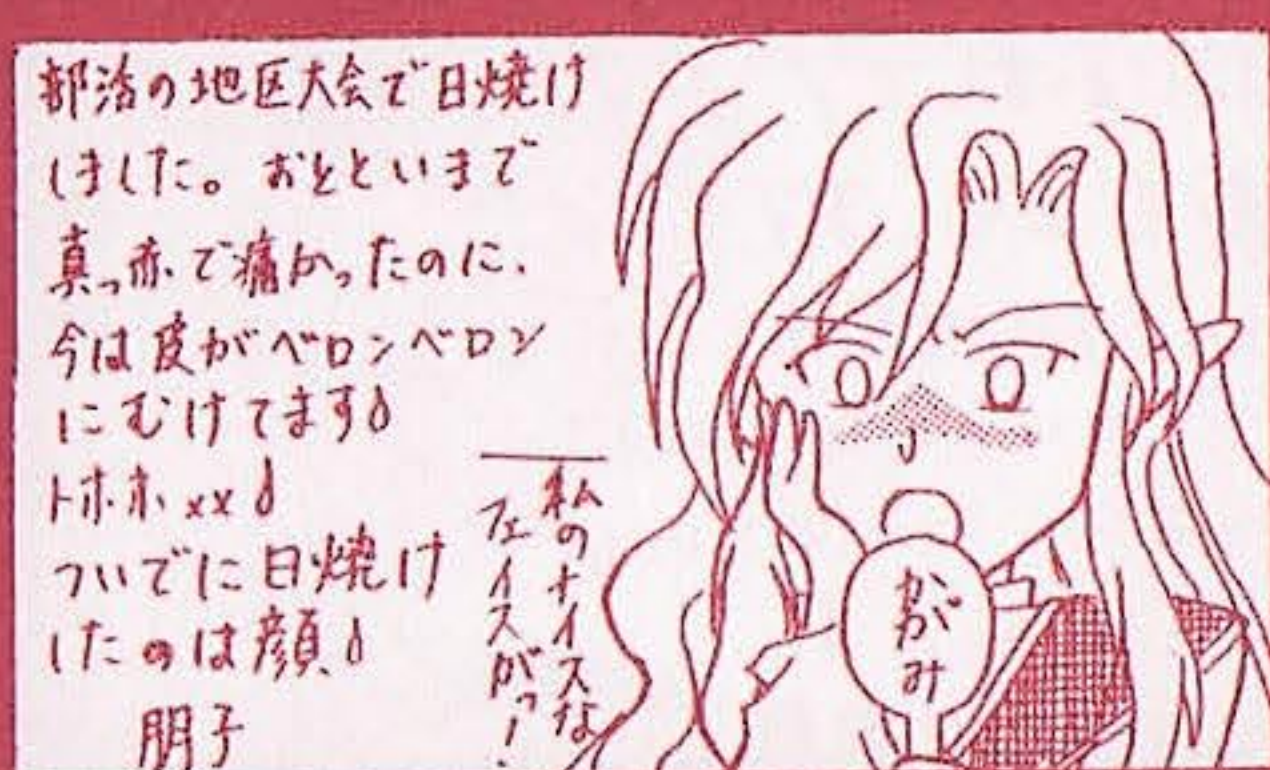 部活の地区大会で日焼け
しました。おとといまで
真っ赤で痛かったのに、
今は皮がベロンベロン
にむけてます
トホホ xx
ついでに日焼け
したのは顔
朋子
私のナイスな
フェイスがっ!
かがみ